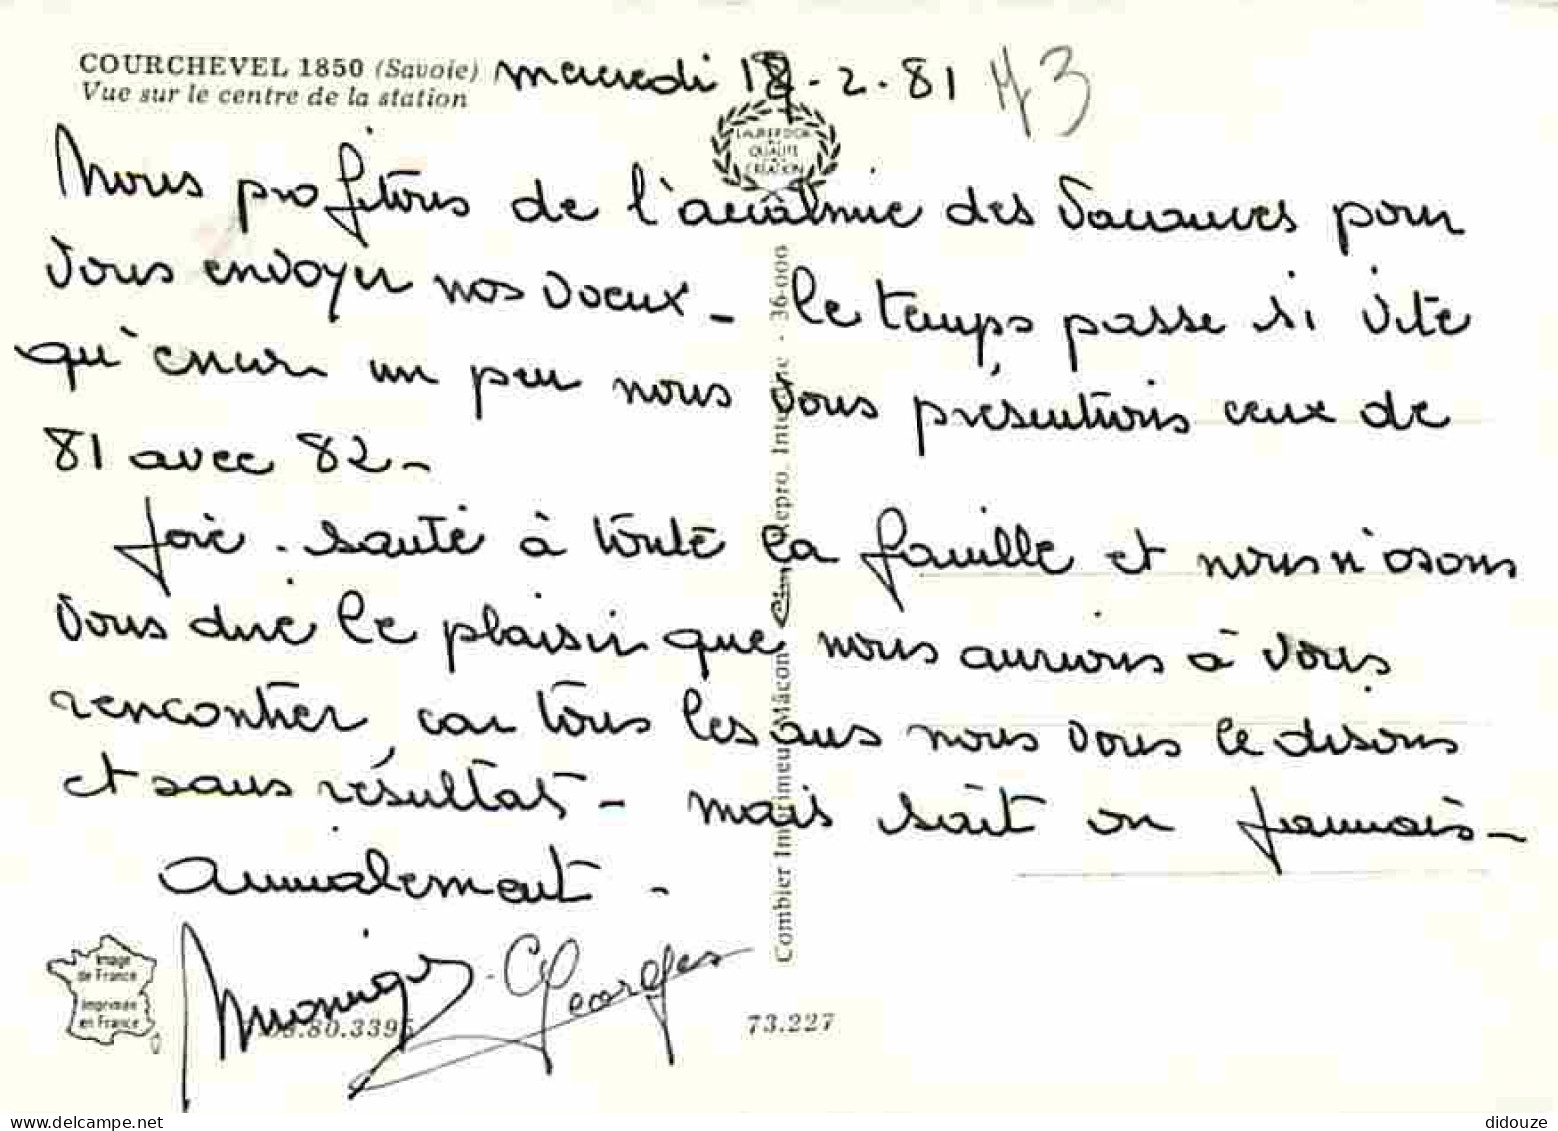 COURCHEVEL 1850 (Savoie)
Vue sur le centre de la station
mercredi 18-2-81
73
LAURIER D'OR
DE LA
QUALITE
CREATION
Nous profitons de l'accalmie des vacances pour
vous envoyer nos voeux - le temps passe si vite
qu'encore un peu nous vous présentions ceux de
81 avec 82 -
Joie - santé à toute la famille et nous n'osons
vous dire le plaisir que nous aurions à vous
rencontrer, car tous les ans nous vous le disons
et sans résultat - mais sait on jamais -
Amicalement -
Monique - Georges
Combier Imprimeur Mâcon Repro. Interdite - 36-000
Image
de France
Imprimée
en France
.80.3395
73.227
didouze